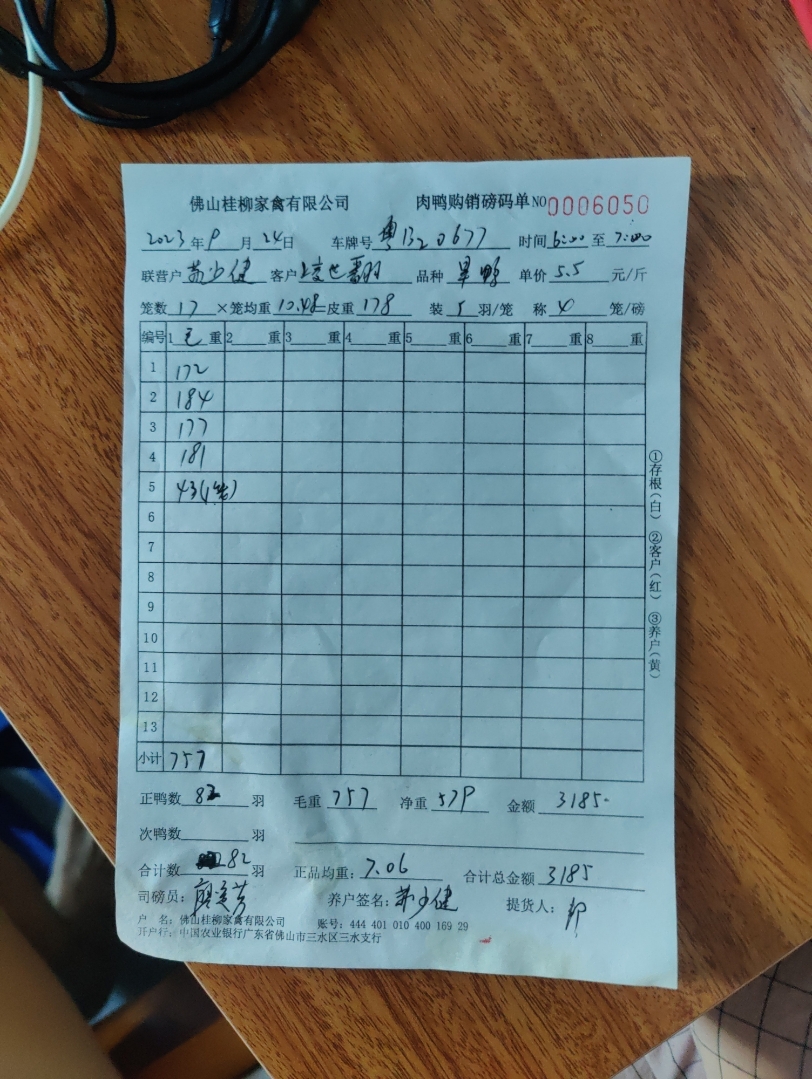 佛山桂柳家禽有限公司 肉鸭购销磅码单 NO 0006050
2023年9月24日 车牌号 粤B20677 时间 6:00 至 7:00
联营户 苏少健 客户 品种 单价 5.5 元/斤
笼数 17 ×笼均重 10.48 皮重 178 装 5 羽/笼 称 4 笼/磅
编号 1 毛 重 2 重 3 重 4 重 5 重 6 重 7 重 8 重
1 172
2 184
3 177
4 181
5 43(1笼)
6
7
8
9
10
11
12
13
小计 757
①存根(白) ②客户(红) ③养户(黄)
正鸭数 82 羽 毛重 757 净重 579 金额 3185
次鸭数 羽
合计数 82 羽 正品均重: 7.06 合计总金额 3185
司磅员: 养户签名: 苏少健 提货人:
户 名: 佛山桂柳家禽有限公司 账号: 444 401 010 400 169 29
开户行: 中国农业银行广东省佛山市三水区三水支行